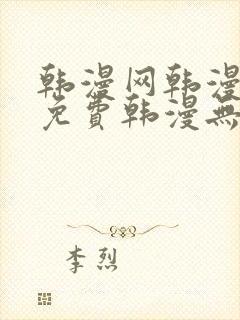 韩漫网韩漫
免費韩漫無
李烈